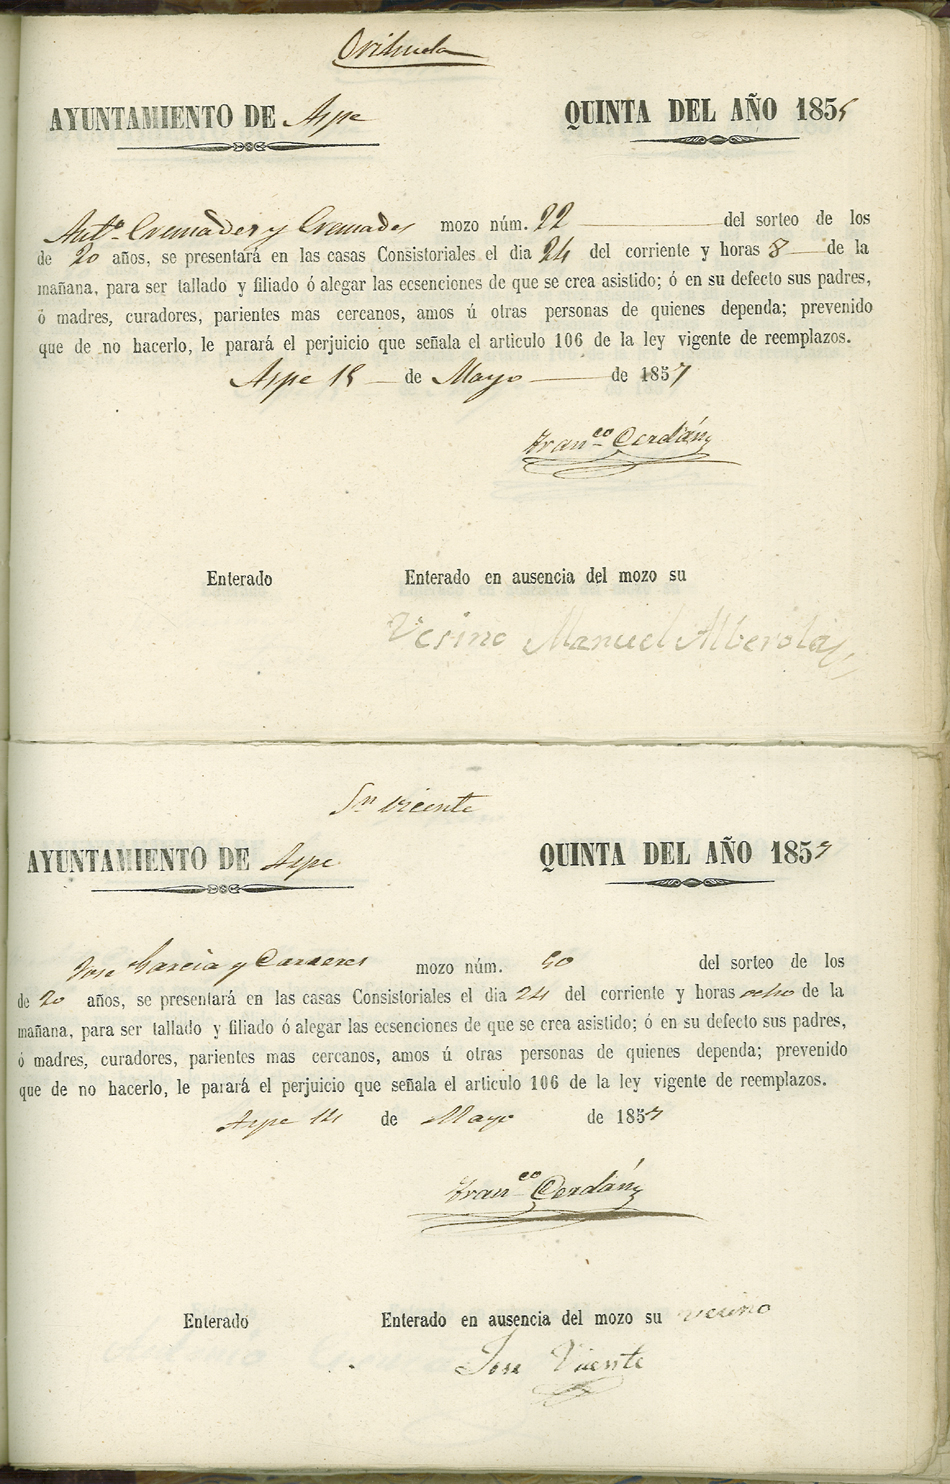 Orihuela
AYUNTAMIENTO DE Aspe QUINTA DEL AÑO 185
Antº Cremades y Cremades mozo núm. 22 del sorteo de los
de 20 años, se presentará en las casas Consistoriales el dia 24 del corriente y horas 8 de la
mañana, para ser tallado y filiado ó alegar las ecsenciones de que se crea asistido; ó en su defecto sus padres,
ó madres, curadores, parientes mas cercanos, amos ú otras personas de quienes dependa; prevenido
que de no hacerlo, le parará el perjuicio que señala el articulo 106 de la ley vigente de reemplazos.
Aspe de Mayo de 1857
Franco Cerdán
Enterado Enterado en ausencia del mozo su
Vesino Manuel Alberola
Sn Vicente
AYUNTAMIENTO DE Aspe QUINTA DEL AÑO 1857
Jose Garcia y mozo núm. del sorteo de los
de 20 años, se presentará en las casas Consistoriales el dia 24 del corriente y horas ocho de la
mañana, para ser tallado y filiado ó alegar las ecsenciones de que se crea asistido; ó en su defecto sus padres,
ó madres, curadores, parientes mas cercanos, amos ú otras personas de quienes dependa; prevenido
que de no hacerlo, le parará el perjuicio que señala el articulo 106 de la ley vigente de reemplazos.
Aspe 14 de Mayo de 1857
Franco Cerdán
Enterado Enterado en ausencia del mozo su vecino
Jose Vicente